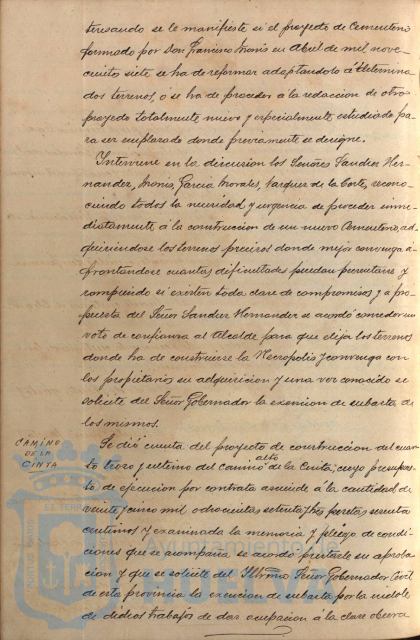 teresando se le manifieste si el proyecto de Cementerio
formado por Don Francisco Monís en Abril de mil nove
cientos siete se ha de reformar adaptandolo á determina
dos terrenos, ó se ha de proceder á la redaccion de otro
proyecto totalmente nuevo y especialmente estudiado pa
ra ser emplazado donde previamente se designe.
Intervienen en la discusion los Señores Sanchez Her-
nandez, Monís, Garcia Morales, Vazquez de la Corte, recono-
ciendo todos la necesidad y urgencia de proceder inme
diatamente á la construccion de un nuevo Cementerio, ad-
quiriendose los terrenos precisos donde mejor convenga á-
frontandose cuantas dificultades puedan presentarse y
rompiendo si existen toda clase de compromisos y a pro-
puesta del Señor Sanchez Hernandez se acordó conceder un
voto de confianza al Alcalde para que elija los terrenos
donde ha de construirse la Necropolis y convenga con
los propietarios su adquisicion y una vez conocido se
solicite del Señor Gobernador la exencion de subasta de
los mismos.
CAMINO
DE LA
CINTA
Se dió cuenta del proyecto de construccion del cuar
to trozo y ultimo del camino alto de la Cinta; cuyo presupues
to de ejecucion por contrata asciende á la cantidad de
veinte y cinco mil ochocientas setenta y tres pesetas sesenta
centimos y examinada la memoria y pliego de condi-
ciones que se acompaña se acordó prestarle su aproba
cion y que se solicite del Iltmo Señor Gobernador Civil
de esta provincia la exencion de subasta por la indole
de dichos trabajos de dar ocupacion á la clase obrera